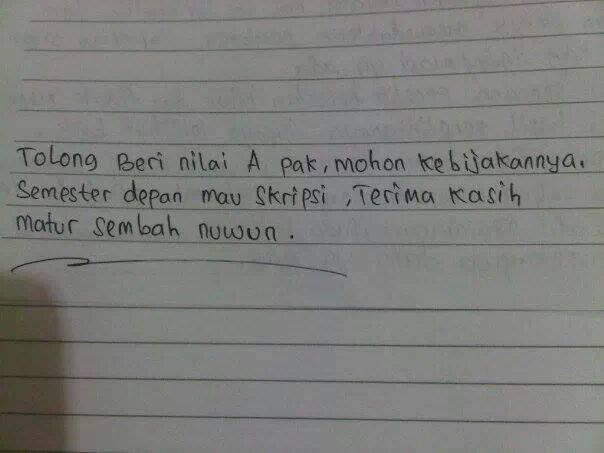 Tolong Beri nilai A pak, mohon kebijakannya.
Semester depan mau skripsi, Terima kasih
matur sembah nuwun.